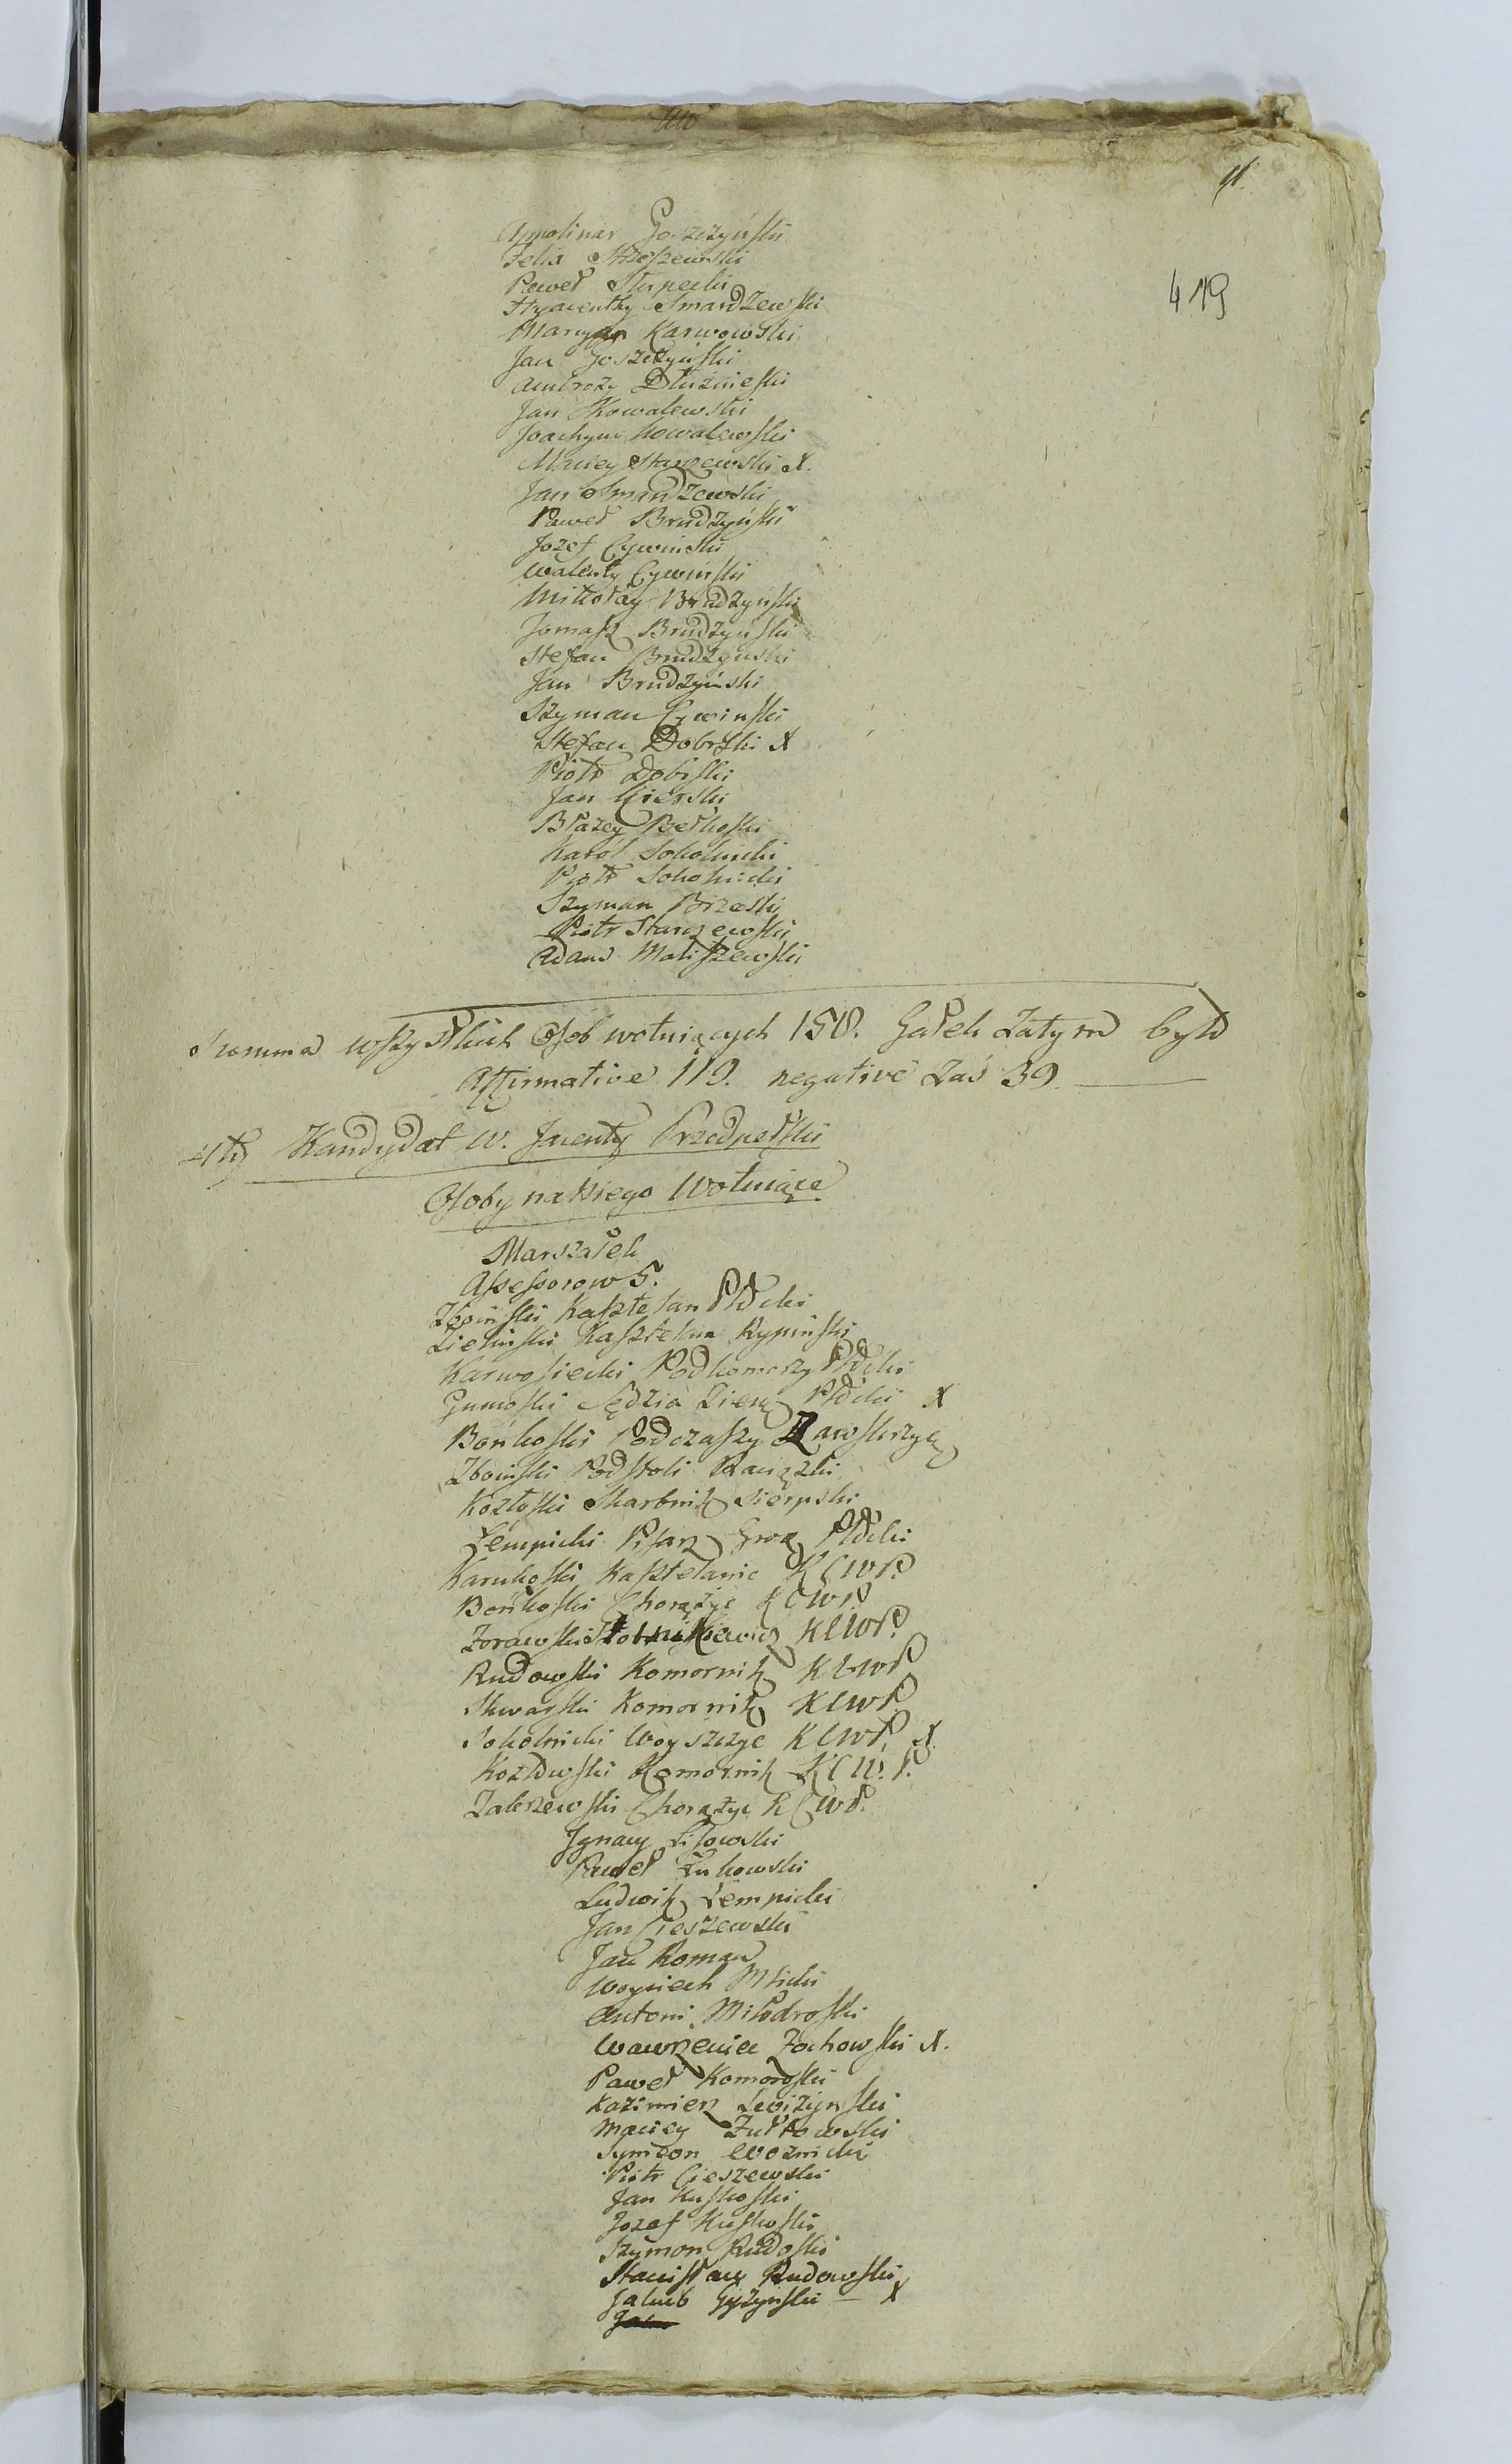 91.
419
Apolinar Goszczyński
Felix Mroszewski
Paweł Słupecki
Hyacenthy Smardzewski
Maryan Karwowski
Jan Goszczyński
Ambroży Dłużnieski
Jan Kowalewski
Joachym Kowalewski
Maciey Starzewski X.
Jan Smardzewski
Paweł Brudzyński
Jozef Cywiński
Walenty Cywiński
Mikołay Brudzyński
Tomasz Brudzyński
Stefan Brudzynski
Jan Brudzyński
Szyman Cywinski
Stefan Dobrski X
Piotr Dobiski
Jan Gierski
Błażey Bełkoski
Karol Sokolnicki
Piotr Sokolnicki
Szyman Brzeski
Piotr Starzewski
Adam Maliszewski
Summa wszystkich Osob wotuiących 158. Gałek zatym było
Affirmative 119. negative zaś 39
4ty Kandydat W. Jacenty Przedpełski
Osoby na Niego Wotuiące
Marszałek
Assessorow 5.
Zboiński Kasztelan Płocki
Zieliński Kasztelan Rypiński
Karwosiecki Podkomorzy Płocki
Gumoski Sędzia Ziem Płocki X
Bońkoski Podczaszy Zawskrzyń
Zboiński Podstoli Raciązki
Kozłoski Skarbnik Sierpski
Łempicki Pisarz Grodz Płocki
Karnkoski Kasztelanic KCWP.
Bońkoski Chorążyc KCWP.
Zorawski KCWP.
Rudowski Komornik KCWP
Skwarski Komornik KCWP.
Sokolnicki Woyszczyc KCWP. X
Kozłowski Komornik KCW.P.
Zakrzewski Chorążyc KCWP.
Ignacy Lisowski
Paweł Łukowski
Ludwik Łempicki
Jan Cieszewski
Jan Roman
Woyciech Mlicki
Antoni Miłodroski
Wawrzeniec Zochowski X.
Paweł Komoroski
Kazimierz Swiżyński
Maciey Zułtowski
Symeon Woznicki
Piotr Cieszewski
Jan Kuskoski
Jozef Kuskoski
Szymon Rudoski
Stanisław Rudowski
Jakub Giżyński — X